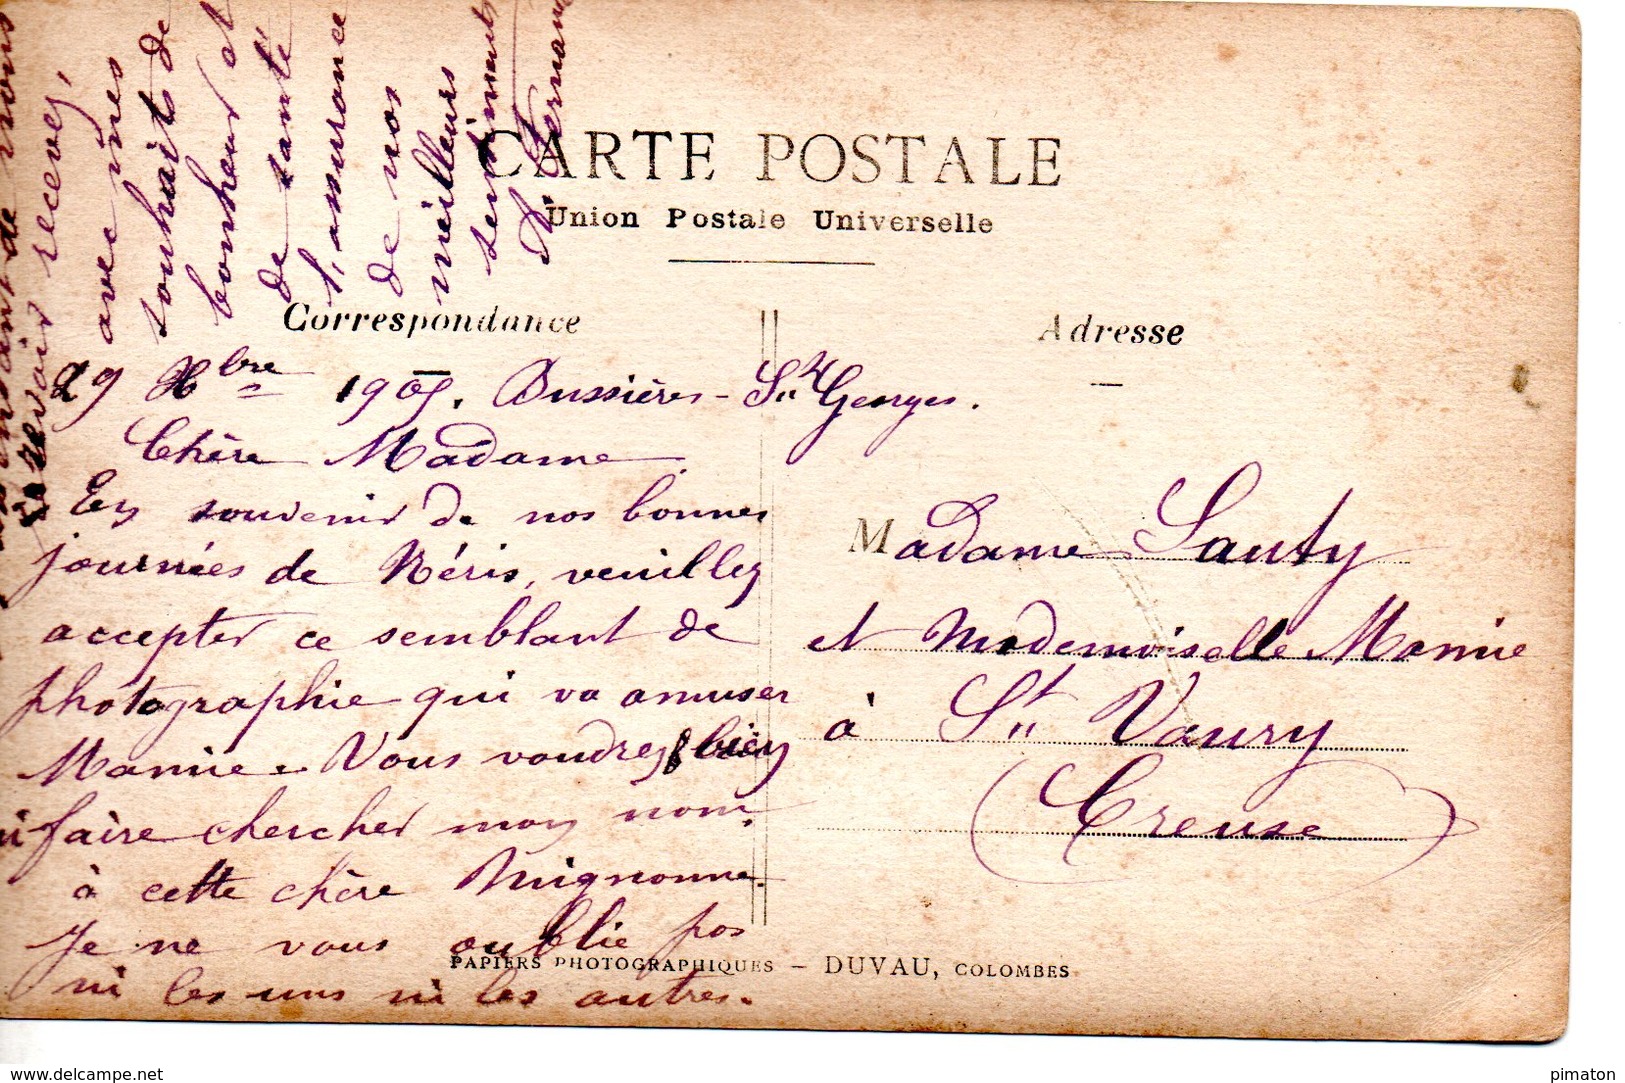 CARTE POSTALE
Union Postale Universelle
Correspondance
Adresse
29 Xbre 1905. Bussières-St Georges.
Chère Madame
En souvenir de nos bonnes
journées de Néris, veuillez
accepter ce semblant de
photographie qui va amuser
Mamie. Vous voudrez bien
faire chercher mon nom
à cette chère Mignonne.
Je ne vous oublie pas
ni les uns ni les autres.
de nous
revoir recevez,
avec mes
souhaits de
bonheur et
de santé
l'assurance
de nos
meilleurs
sentiments
Madame Sauty
et Mademoiselle Mamie
à St Vaury
(Creuse)
PAPIERS PHOTOGRAPHIQUES – DUVAU, COLOMBES
www.delcampe.net
pimaton